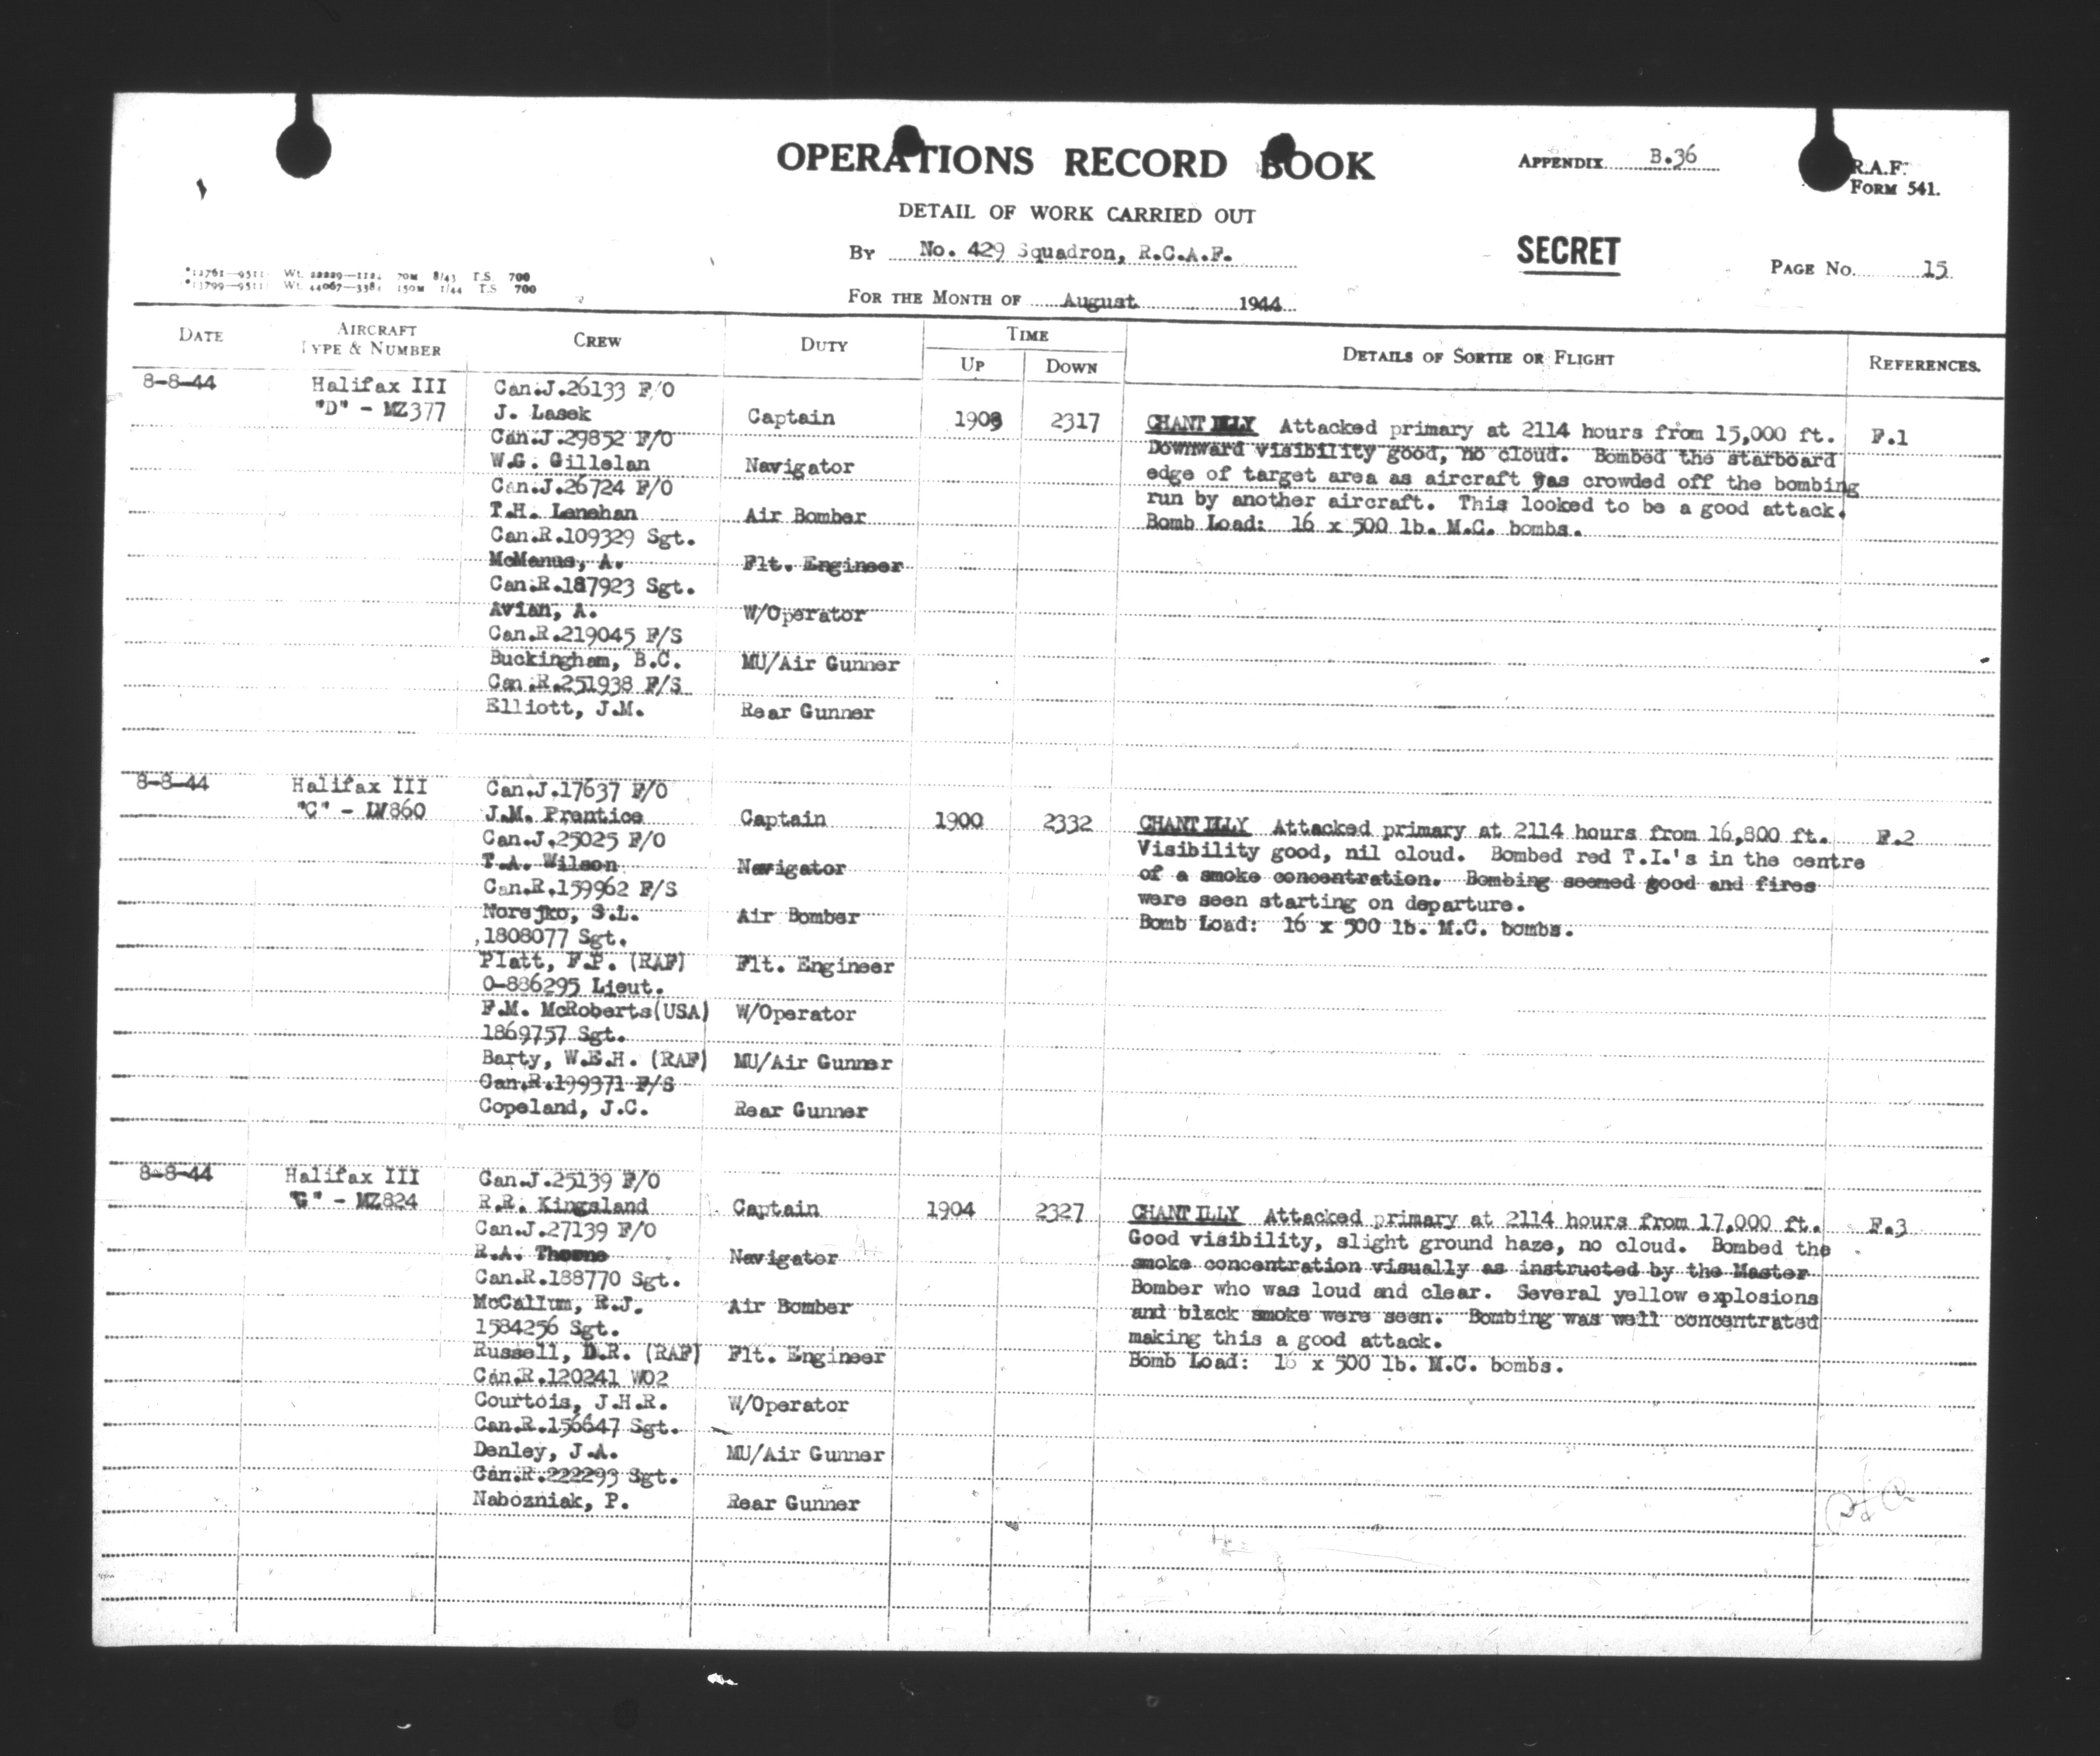 OPERATIONS RECORD BOOK
APPENDIX B.36
R.A.F.
FORM 541.
DETAIL OF WORK CARRIED OUT
By No. 429 Squadron, R.C.A.F.
SECRET
PAGE No. 15
FOR THE MONTH OF August 1944
DATE
AIRCRAFT TYPE & NUMBER
CREW
DUTY
TIME
UP
DOWN
DETAILS OF SORTIE OR FLIGHT
REFERENCES.
8-8-44 Halifax III Can.J.26133 F/O
"D" - MZ377 J. Lasek Captain 1908 2317 CHANTILLY Attacked primary at 2114 hours from 15,000 ft. F.1
Can.J.29852 F/O Downward visibility good, no cloud. Bombed the starboard
W.G. Gillelan Navigator edge of target area as aircraft was crowded off the bombing
Can.J.26724 F/O run by another aircraft. This looked to be a good attack.
T.H. Lenehan Air Bomber Bomb Load: 16 x 500 lb. M.C. bombs.
Can.R.109329 Sgt.
McManus, A. Flt. Engineer
Can.R.187923 Sgt.
Avian, A. W/Operator
Can.R.219045 F/S
Buckingham, B.C. MU/Air Gunner
Can.R.251938 F/S
Elliott, J.M. Rear Gunner
8-8-44 Halifax III Can.J.17637 F/O
"C" - LV860 J.M. Prentice Captain 1900 2332 CHANTILLY Attacked primary at 2114 hours from 16,800 ft. F.2
Can.J.25025 F/O Visibility good, nil cloud. Bombed red T.I.'s in the centre
T.A. Wilson Navigator of a smoke concentration. Bombing seemed good and fires
Can.R.159962 F/S were seen starting on departure.
Norejko, S.L. Air Bomber Bomb Load: 16 x 500 lb. M.C. bombs.
1808077 Sgt.
Platt, F.P. (RAF) Flt. Engineer
O-886295 Lieut.
F.M. McRoberts(USA) W/Operator
1869757 Sgt.
Barty, W.E.H. (RAF) MU/Air Gunner
Can.R.199371 F/S
Copeland, J.C. Rear Gunner
8-8-44 Halifax III Can.J.25139 F/O
"G" - MZ824 R.R. Kingsland Captain 1904 2327 CHANTILLY Attacked primary at 2114 hours from 17,000 ft. F.3
Can.J.27139 F/O Good visibility, slight ground haze, no cloud. Bombed the
R.A. Thorne Navigator smoke concentration visually as instructed by the Master
Can.R.188770 Sgt. Bomber who was loud and clear. Several yellow explosions
McCallum, R.J. Air Bomber and black smoke were seen. Bombing was well concentrated
1584256 Sgt. making this a good attack.
Russell, D.R. (RAF) Flt. Engineer Bomb Load: 16 x 500 lb. M.C. bombs.
Can.R.120241 WO2
Courtois, J.H.R. W/Operator
Can.R.156647 Sgt.
Denley, J.A. MU/Air Gunner
Can.R.222293 Sgt.
Nabozniak, P. Rear Gunner